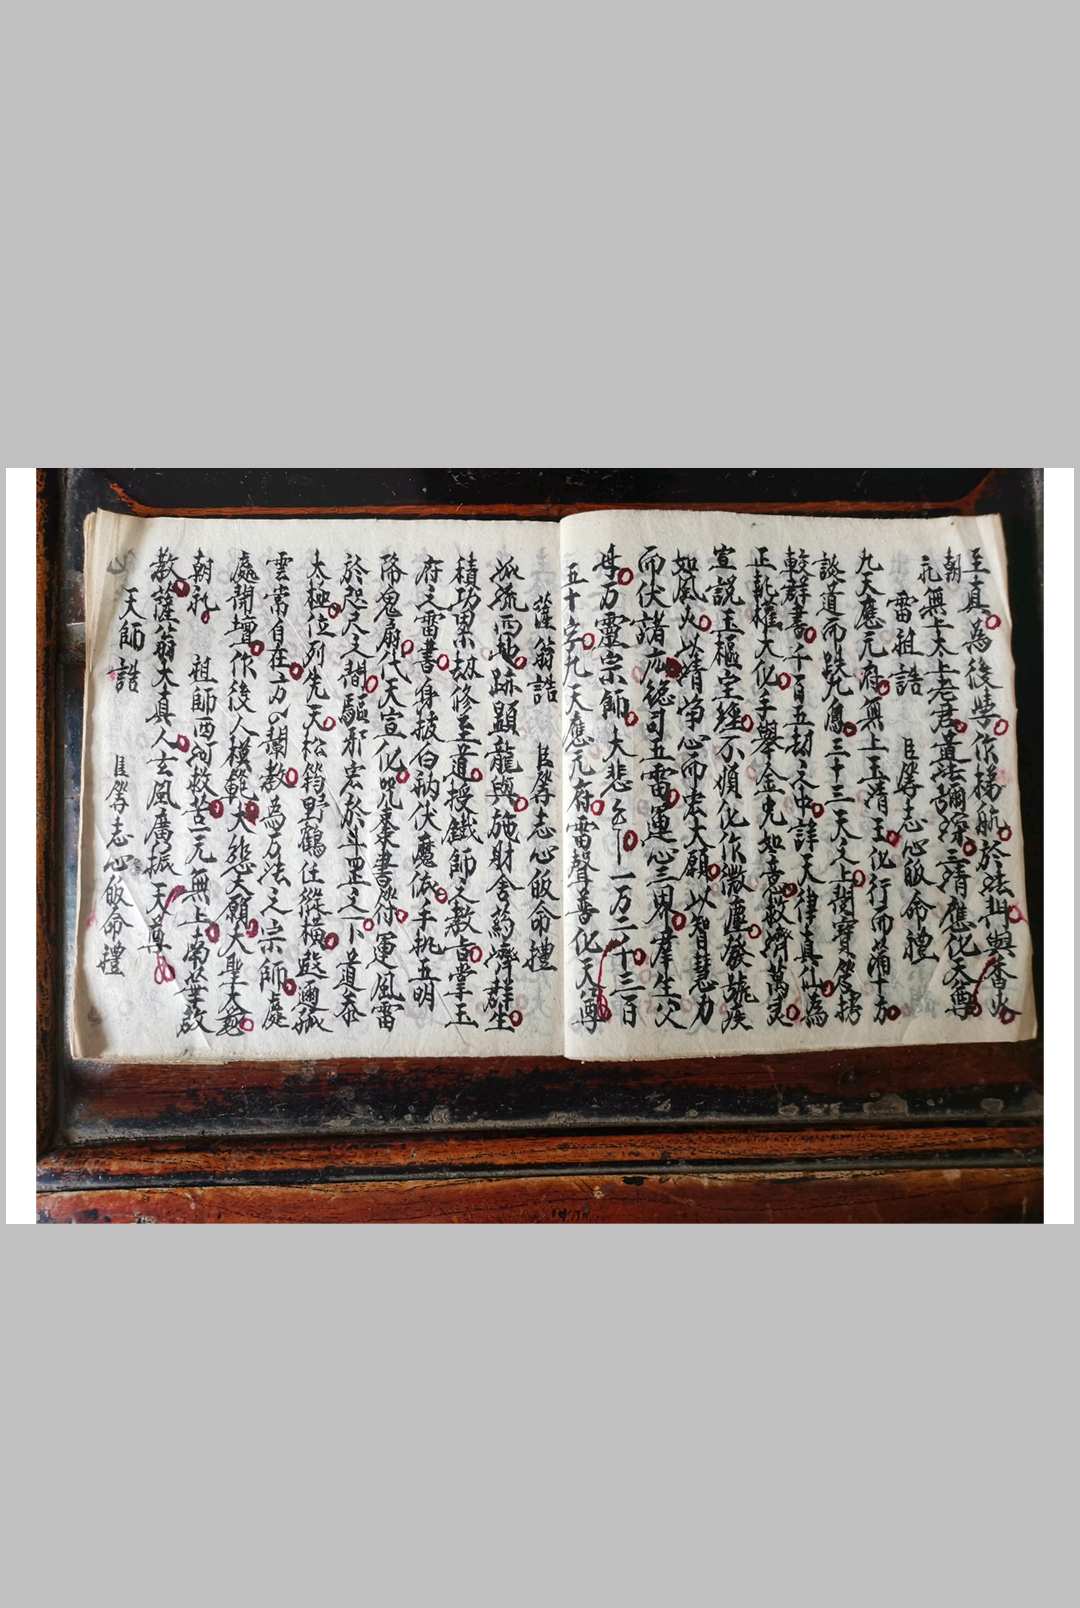 至真為後學作梯航於法界與香火
朝礼無上太上老君道法彌深三清應化天尊
雷祖誥 臣等志心皈命禮
九天應元府無上玉清王化行而滿十方
談道而趺九鳳三十三天之上閱寶笈捧
較群書千百五劫之中詳天律真仙為
正乾權大化手舉金光如意救濟萬灵
宣說玉樞宝經不順化作微塵發號疾
如風火以清净心而宏大願以智慧力
而伏諸 总司五雷運心三界羣生父
母万靈宗師大悲 一万二千十三百
五十 九天應元府雷聲普化天尊
薩翁誥 臣等志心皈命禮
派流西 跡顯龍興施財舍药濟群生
積功累劫修至道授鐵師之教旨掌玉
府之雷書身披白衲伏魔依手执五明
降鬼扇代天宣化咒棗書符運風雷
於咫尺之間驅邪 於斗罡之下道泰
太極位列先天松筠野鶴任縱橫 遍孤
雲常自在方 闡教為万法之宗師處
處開壇作後人模範大慈大願大聖大慈
朝礼 祖師西河救苦一元無上南華教
教薩翁大真人玄風廣振天尊
天師誥 臣等志心皈命禮